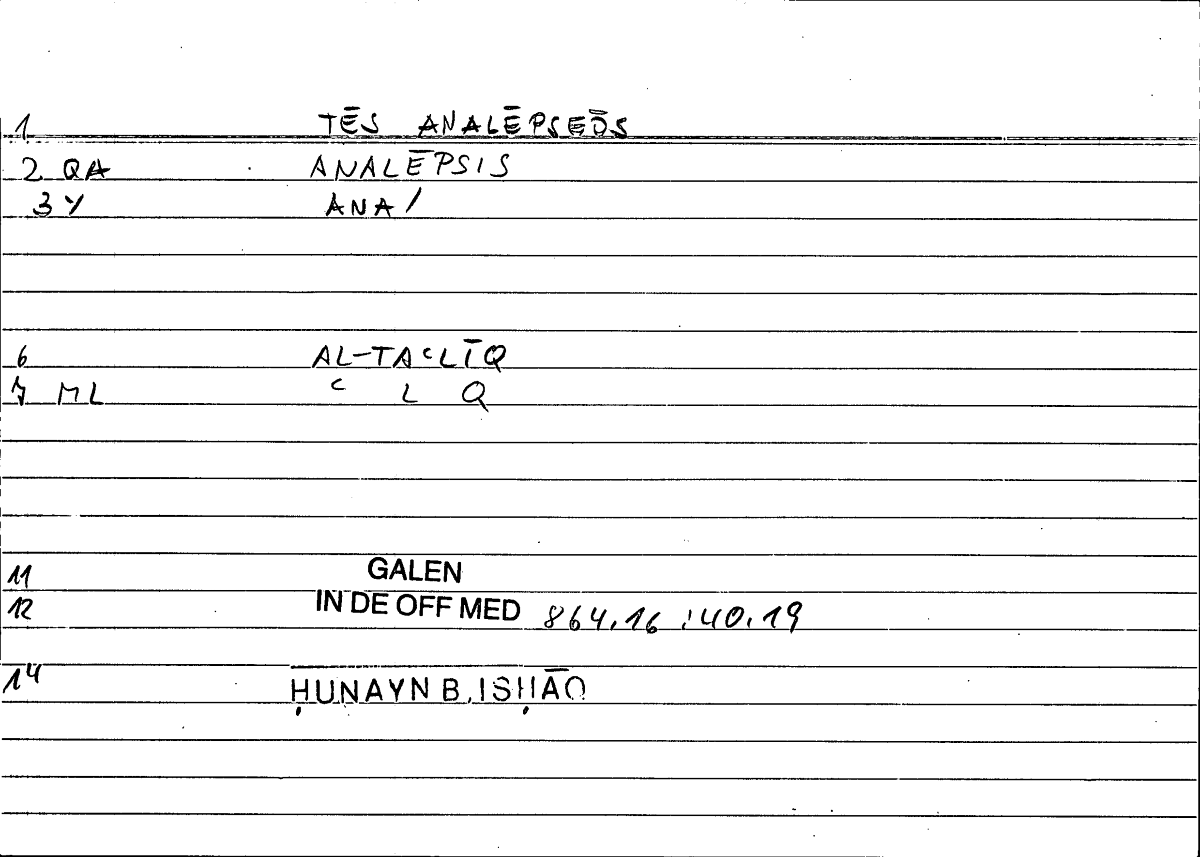 1 TĒS ANALĒPSEŌS
2 QA ANALĒPSIS
3 Y ANA/
6 AL-TAᶜLĪQ
7 ML ᶜ L Q
11 GALEN
12 IN DE OFF MED 864.16 :40.19
14 ḤUNAYN B. ISḤĀQ